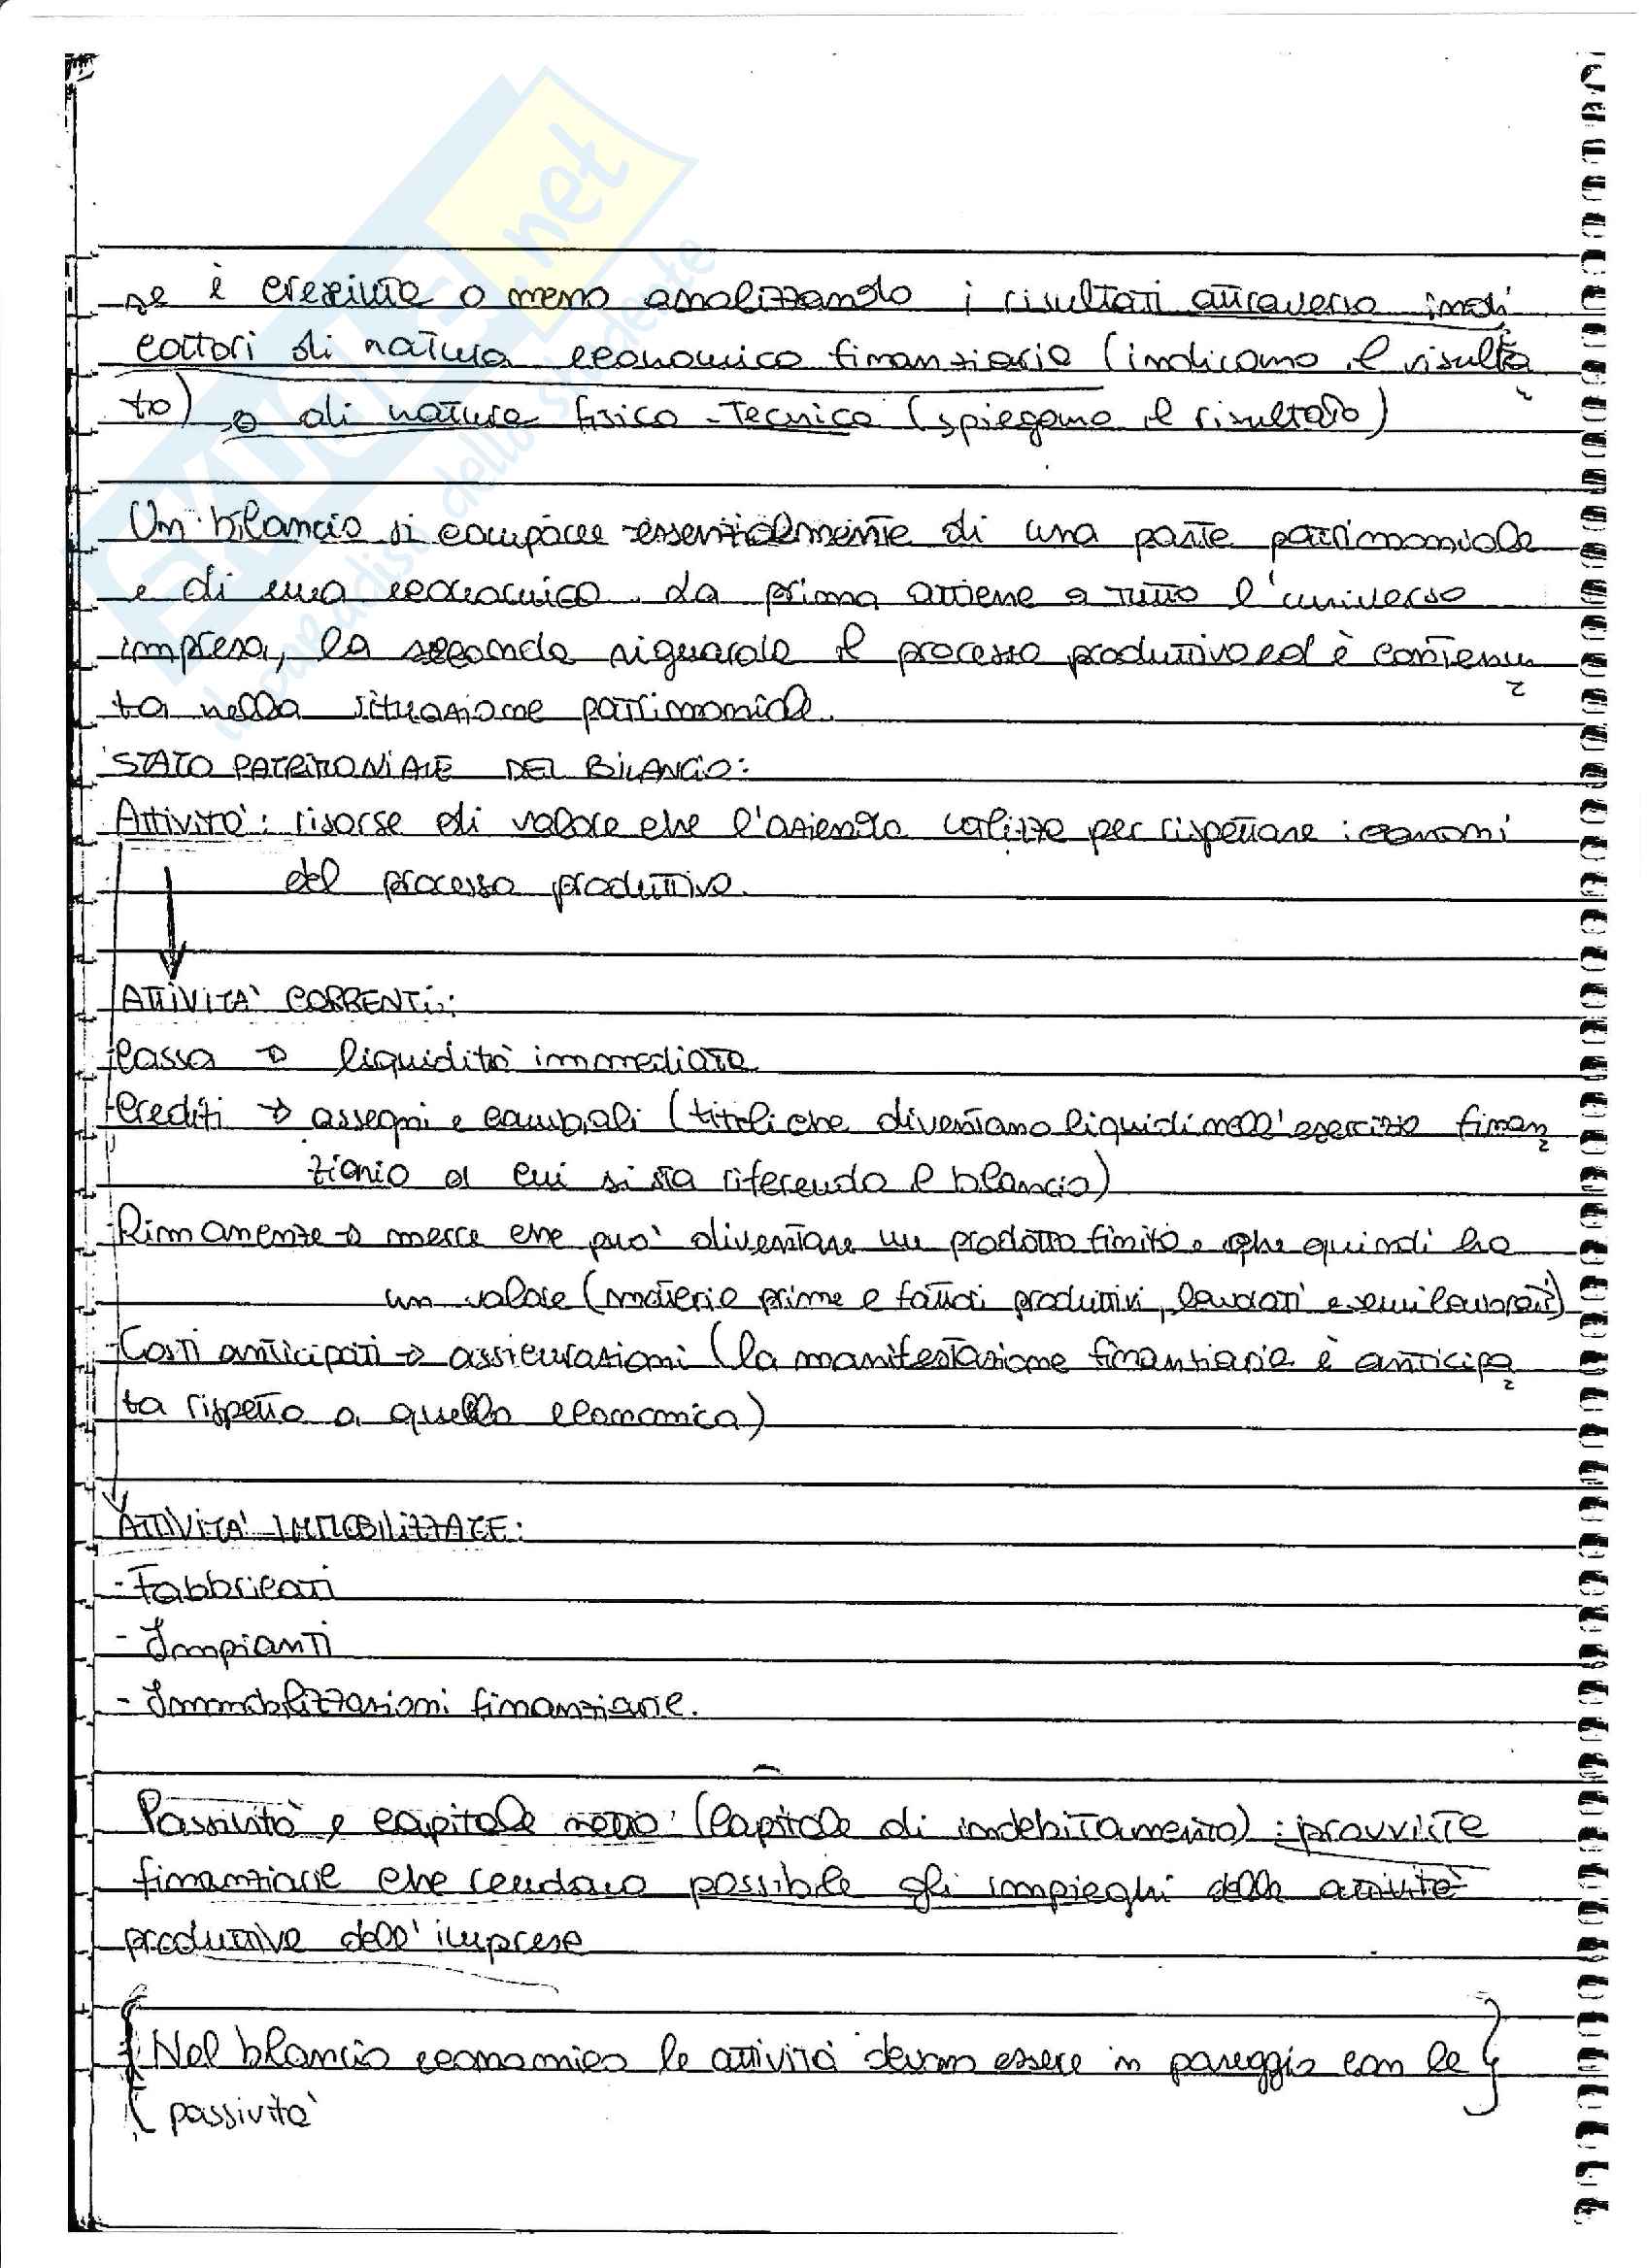 se è cresciuta o meno analizzando i risultati attraverso indi
catori di natura economico finanziaria (indicano il risulta
to) o di natura fisico-tecnica (spiegano il risultato)
Un bilancio si compone essenzialmente di una parte patrimoniale
e di una economica. La prima attiene a tutto l'universo
impresa, la seconda riguarda il processo produttivo ed è contenu
ta nella situazione patrimoniale.
STATO PATRIMONIALE DEL BILANCIO:
Attività: risorse di valore che l'azienda utilizza per rispettare i canoni
del processo produttivo.
ATTIVITA' CORRENTI:
-Cassa → liquidità immediata
-Crediti → assegni e cambiali (titoli che diventano liquidi nell'esercizio finan
ziario a cui si sta riferendo il bilancio)
-Rimanenze → merce che può diventare un prodotto finito e che quindi ha
un valore (materie prime e fattori produttivi, lavorati e semilavorati)
-Costi anticipati → assicurazioni (la manifestazione finanziaria è anticipa
ta rispetto a quella economica)
ATTIVITA' IMMOBILIZZATE:
-Fabbricati
-Impianti
-Immobilizzazioni finanziarie.
Passività e capitale netto (Capitale di indebitamento): provviste
finanziarie che rendono possibile gli impieghi delle attività
produttive dell'impresa
{Nel bilancio economico le attività devono essere in pareggio con le}
passività
SKUOLA.net
il paradiso dello studente